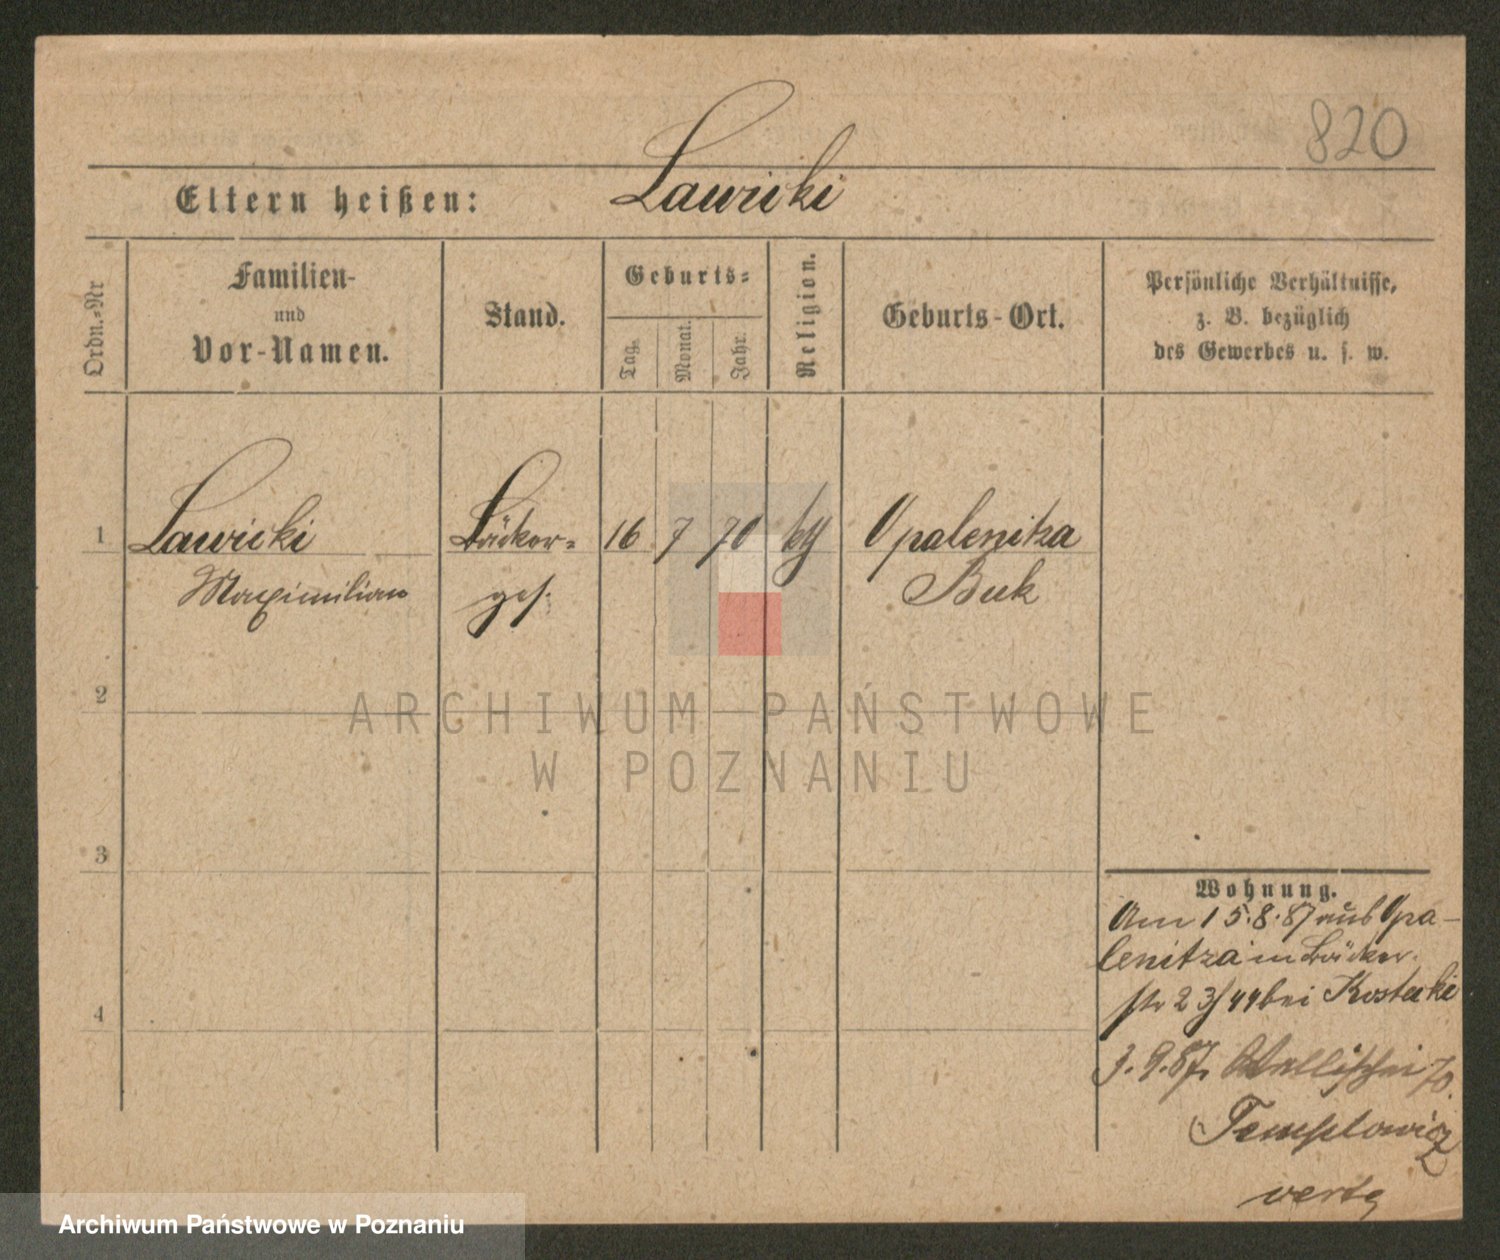 820
Eltern heißen: Lawicki
Ordn.-Nr
Familien-
und
Vor-Namen.
Stand.
Geburts-
Tag.
Monat.
Jahr.
Religion.
Geburts-Ort.
Persönliche Verhältnisse,
z. B. bezüglich
des Gewerbes u. s. w.
1 Lawicki Bäcker- 16 7 70 kth Opalenitza
Maximilian ges. Buk
2
ARCHIWUM PAŃSTWOWE
W POZNANIU
3
Wohnung.
Am 15.8.87 aus Opa-
lenitza in Bäcker
str 23/44 bei Kostecki
3.9.87. Wallischei 70.
Templowicz
verte
4
Archiwum Państwowe w Poznaniu